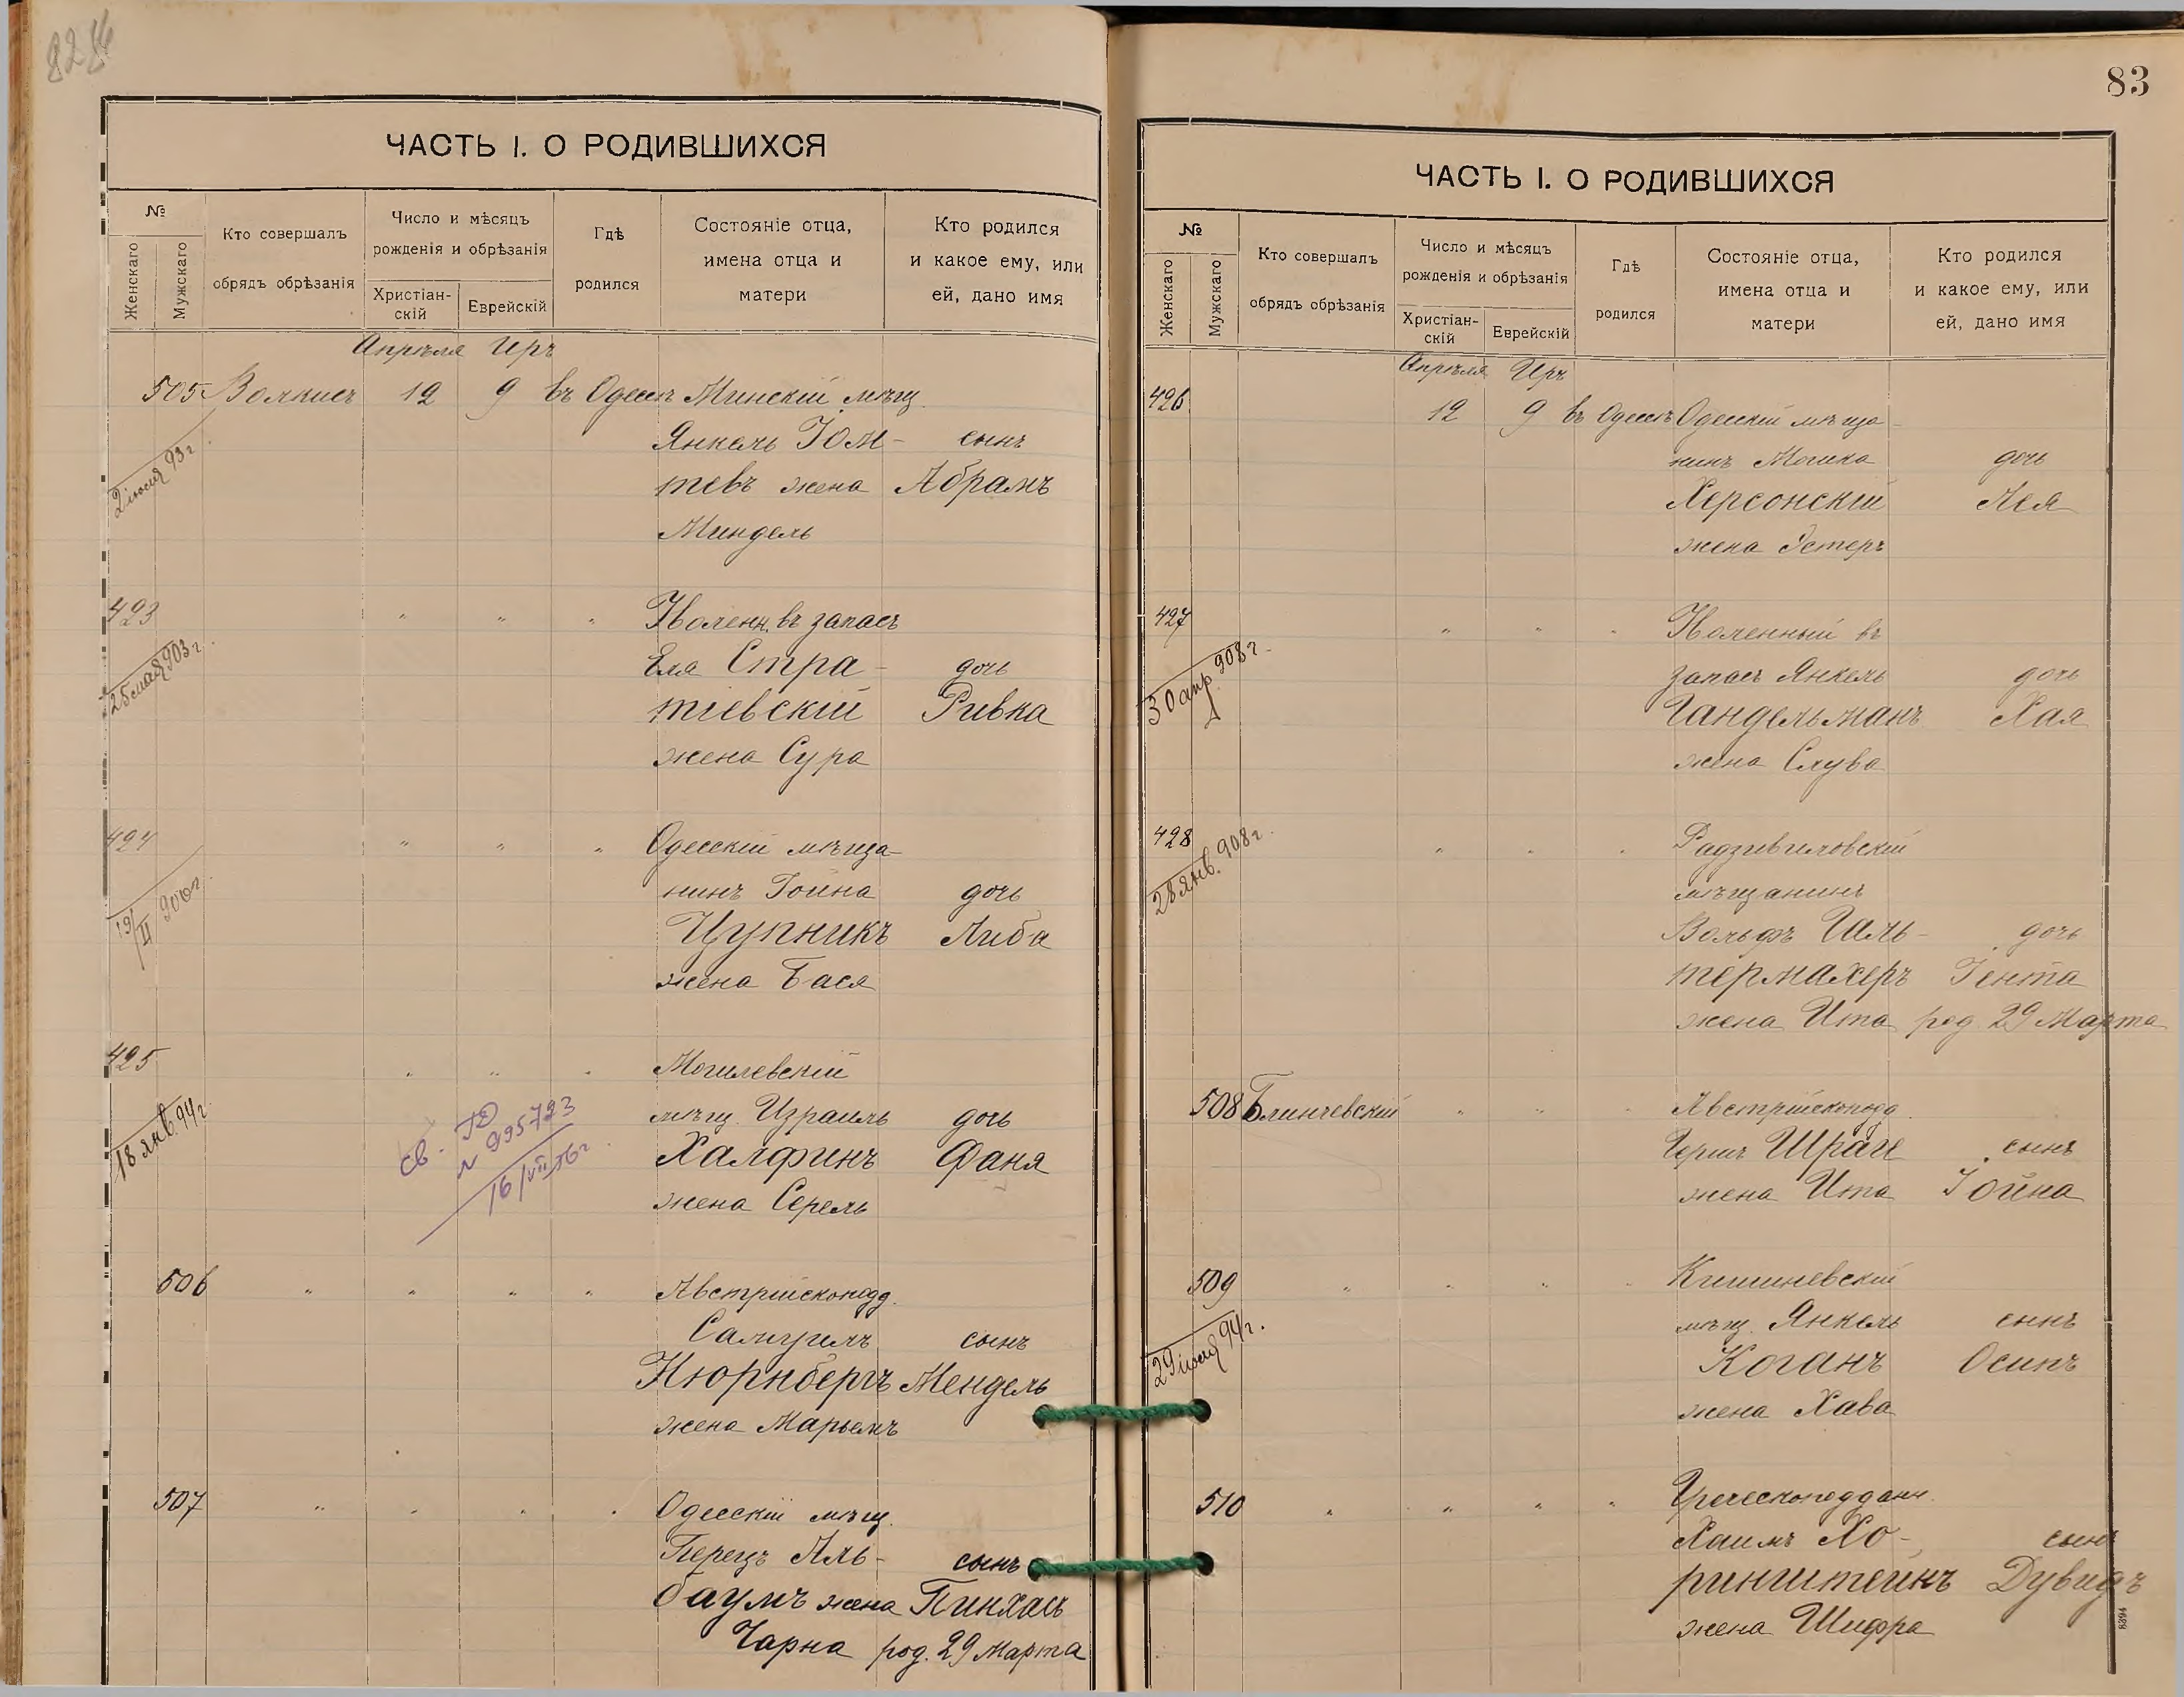 ЧАСТЬ I. О РОДИВШИХСЯ
№
Женскаго
Мужскаго
Кто совершалъ
обрядъ обрѣзанія
Число и мѣсяцъ
рожденія и обрѣзанія
Христіан-
скій
Еврейскій
Гдѣ
родился
Состояніе отца,
имена отца и
матери
Кто родился
и какое ему, или
ей, дано имя
Апрѣля Иръ
505 Волкисъ 12 9 въ Одессѣ Минскій мѣщ.
Янкель Іом- сынъ
тевъ жена Абрамъ
Миндель
2 іюня 93 г.
493 " " " Уволенн. въ запасъ
Еля Стра- дочь
тіевскій Ривка
жена Сура
25 мая 903 г.
424 " " " Одесскій мѣща-
нинъ Іойна дочь
Цупникъ Либа
жена Бася
19/II 900 г.
425 " " " Могилевскій
мѣщ. Израиль дочь
Халфинъ Фаня
жена Серель
18 янв. 94 г.
св. ГЮ
№ 995723
16/VII 16 г.
506 " " " " Австрійскоподд.
Самуилъ сынъ
Нюрнбергъ Мендель
жена Марьемъ
507 " " " " Одесскій мѣщ.
Перецъ Аль- сынъ
баумъ жена Пинхасъ
Чарна род. 29 Марта
83
ЧАСТЬ I. О РОДИВШИХСЯ
№
Женскаго
Мужскаго
Кто совершалъ
обрядъ обрѣзанія
Число и мѣсяцъ
рожденія и обрѣзанія
Христіан-
скій
Еврейскій
Гдѣ
родился
Состояніе отца,
имена отца и
матери
Кто родился
и какое ему, или
ей, дано имя
Апрѣля Иръ
426 12 9 въ Одессѣ Одесскій мѣща-
нинъ Мошка дочь
Херсонскій Лея
жена Эстеръ
427 " " " Уволенный въ
запасъ Янкель дочь
Гандельманъ Хая
жена Слува
30 апр. 908 г.
428 " " " Радзивиловскій
мѣщанинъ
Вольфъ Галь- дочь
термахеръ Гента
жена Ита род. 29 Марта
28 янв. 908 г.
508 Блинчевскій " " " Австрійскоподд.
Гершъ Шраге сынъ
жена Ита Іойна
509 " " " " Кишиневскій
мѣщ. Янкель сынъ
Коганъ Осипъ
жена Хава
29 іюля 94 г.
510 " " " " Греческоподданн.
Хаимъ Хо- сынъ
ринштейнъ Дувидъ
жена Шифра
8394